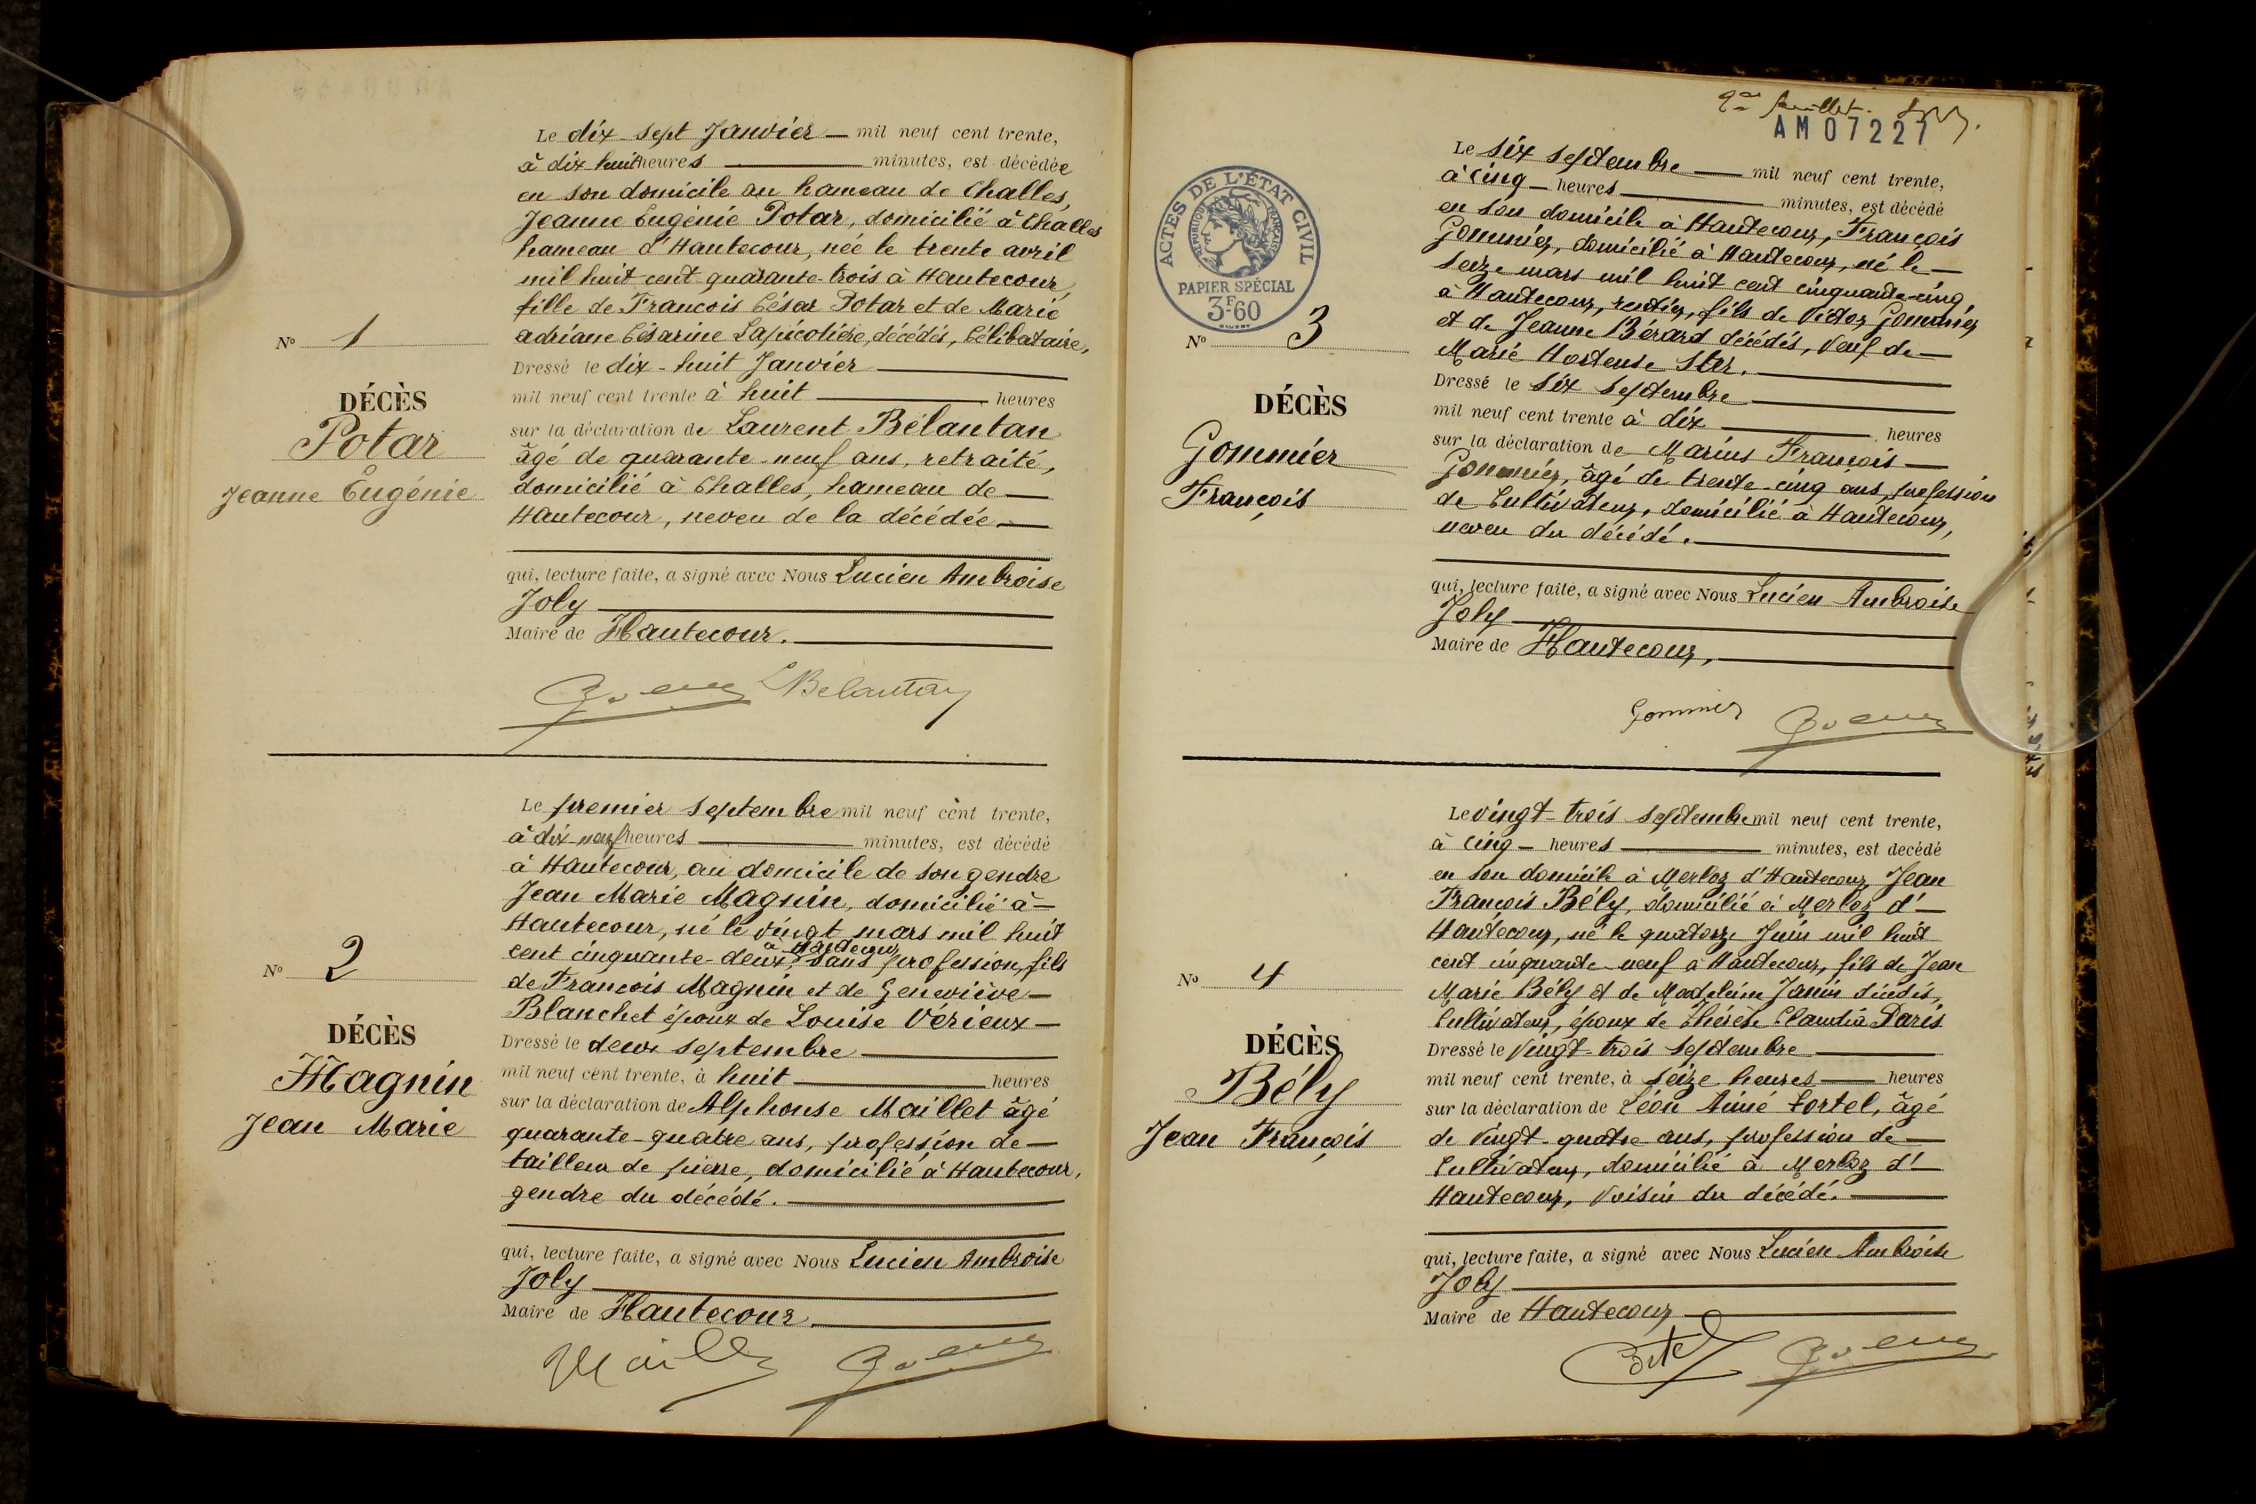 Le dix-sept Janvier — mil neuf cent trente,
à dix huit heures — minutes, est décédée
en son domicile au hameau de Challes,
Jeanne Eugénie Potar, domicilié à Challes
hameau d'Hautecour, née le trente avril
mil huit cent quarante-trois à Hautecour,
fille de François César Potar et de Marie
adriane Césarine Lapicotière, décédés, Célibataire,
N° 1
Dressé le dix-huit Janvier —
mil neuf cent trente à huit — heures
DÉCÈS
Potar
Jeanne Eugénie
sur la déclaration de Laurent Bélantan
âgé de quarante-neuf ans, retraité,
domicilié à Challes, hameau de —
Hautecour, neveu de la décédée —
qui, lecture faite, a signé avec Nous Lucien Ambroise
Joly —
Maire de Hautecour. —
LBelantan
Le premier septembre mil neuf cent trente,
à dix-neuf heures — minutes, est décédé
à Hautecour, au domicile de son gendre
Jean Marie Magnin, domicilié à —
Hautecour, né le vingt mars mil huit
à Hautecour
cent cinquante-deux, sans profession, fils
de François Magnin et de Geneviève —
Blanchet époux de Louise Vérieux —
N° 2
DÉCÈS
Magnin
Jean Marie
Dressé le deux septembre —
mil neuf cent trente, à huit — heures
sur la déclaration de Alphonse Maillet âgé
quarante-quatre ans, profession de —
tailleur de pierre, domicilié à Hautecour,
gendre du décédé. —
qui, lecture faite, a signé avec Nous Lucien Ambroise
Joly —
Maire de Hautecour. —
Maillet
2me feuillet.
AM07227
ACTES DE L'ÉTAT CIVIL
RÉPUBLIQUE FRANÇAISE
PAPIER SPÉCIAL
3F.60
Le six septembre — mil neuf cent trente,
à cinq — heures — minutes, est décédé
en son domicile à Hautecour, François
Gommier, domicilié à Hautecour, né le —
seize mars mil huit cent cinquante-cinq,
à Hautecour, rentier, fils de Victor Gommier
et de Jeanne Bérard décédés, Veuf de —
Marie Hortense Ster. —
N° 3
DÉCÈS
Gommier
François
Dressé le six septembre —
mil neuf cent trente à dix — heures
sur la déclaration de Marius François —
Gommier, âgé de trente-cinq ans, profession
de Cultivateur, domicilié à Hautecour,
neveu du décédé. —
qui, lecture faite, a signé avec Nous Lucien Ambroise
Joly —
Maire de Hautecour, —
Gommier
Le vingt-trois septembre mil neuf cent trente,
à cinq — heures — minutes, est décédé
en son domicile à Merloz d'Hautecour, Jean
François Bély, domicilié à Merloz d' —
Hautecour, né le quatorze Juin mil huit
cent cinquante-neuf à Hautecour, fils de Jean
Marie Bély et de Madeleine Janin décédés,
Cultivateur, époux de Thérèse Claudia Paris
N° 4
DÉCÈS
Bély
Jean François
Dressé le Vingt-trois septembre —
mil neuf cent trente, à seize heures — heures
sur la déclaration de Léon Aimé Tortel, âgé
de Vingt-quatre ans, profession de —
Cultivateur, domicilié à Merloz d' —
Hautecour, Voisin du décédé. —
qui, lecture faite, a signé avec Nous Lucien Ambroise
Joly —
Maire de Hautecour —